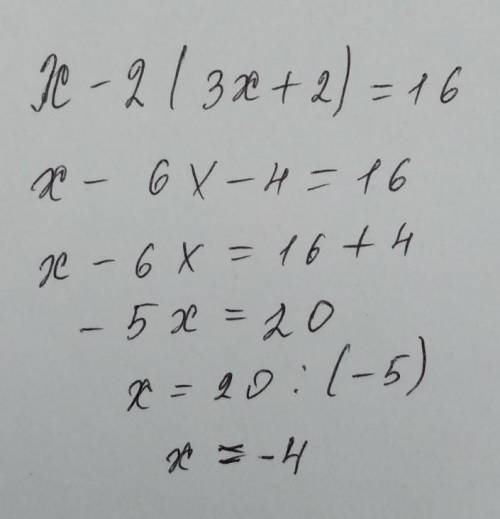 x - 2 ( 3x + 2 ) = 16
x - 6x - 4 = 16
x - 6x = 16 + 4
- 5x = 20
x = 20 : (-5)
x = -4